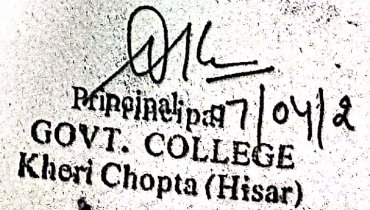 Principal 17/04/2
GOVT. COLLEGE
Kheri Chopta (Hisar)